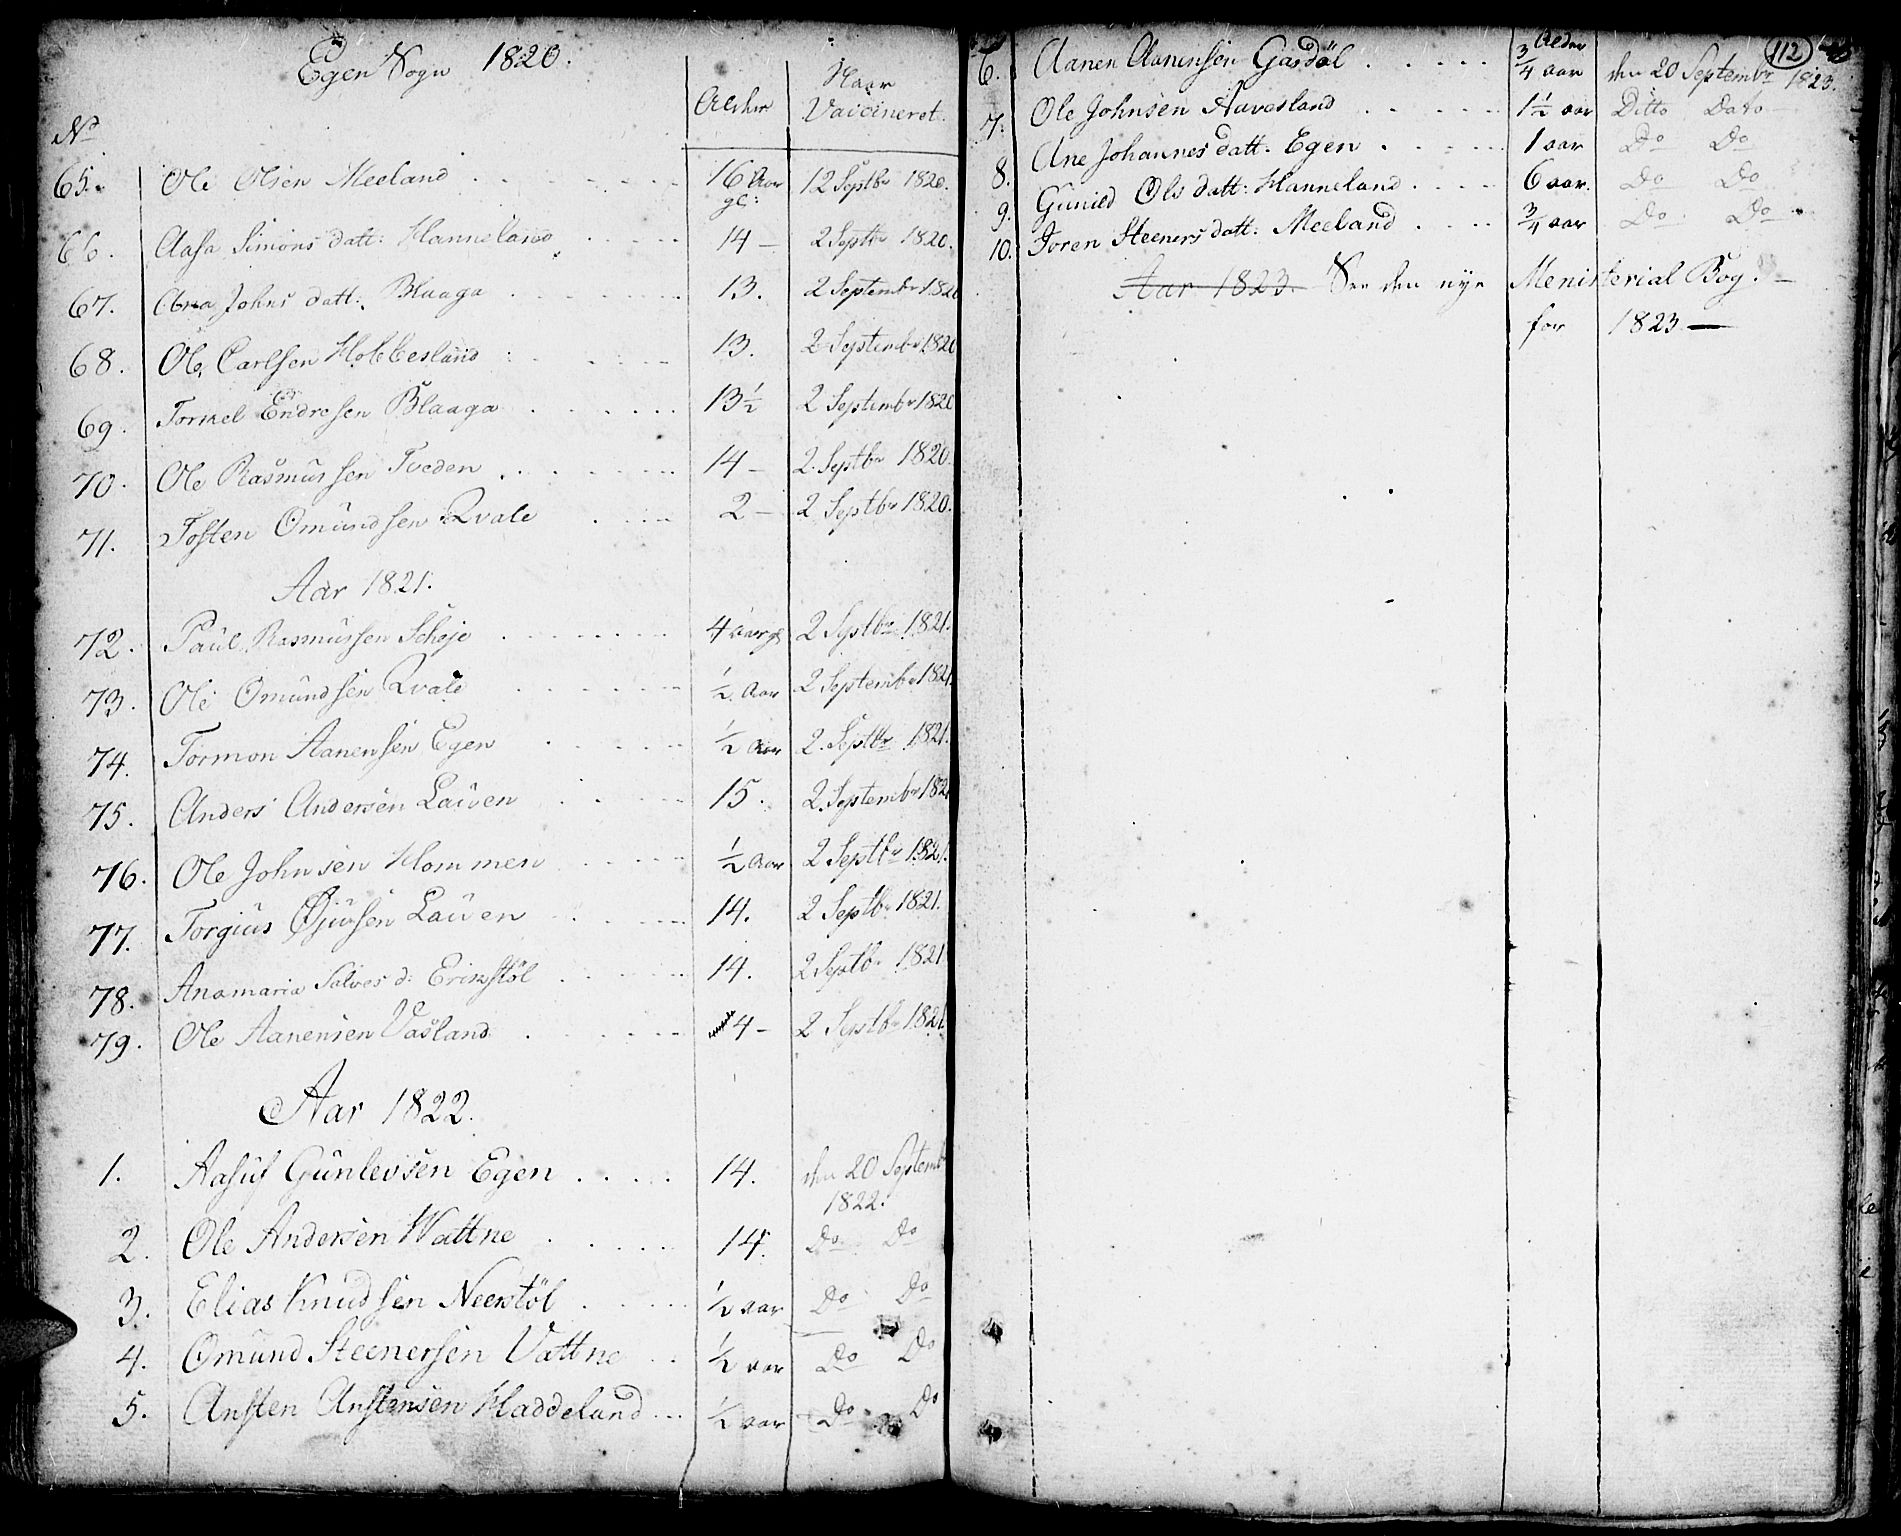 Egen Sogn 1820.
No Alder Naar Vaccineret.
65. Ole Olsen Meeland 16 Aar gl: 12 Septbr 1820.
66. Aasa Simons datt: Hanneland 14 - 2 Septbr 1820.
67. Ana Johns datt: Blaaga 13. 2 Septembr 1820
68. Ole Carlsen Hobbesland 13. 2 Septembr 1820
69. Tormel Endresen Blaaga 13½ 2 Septembr 1820
70. Ole Rasmussen Tveden 14 - 2. Septbr 1820.
71. Tosten Omundsen Qvale 2 - 2 Septbr 1820.
Aar 1821.
72. Paul Rasmussen Scheje 4 aar gl 2 Septbr 1821.
73. Ole Omundsen Qvale ½ Aar 2 Septembr 1821.
74. Tormon Aanensen Egen ½ Aar 2. Septbr 1821.
75. Anders Andersen Lauen 15. 2. Septembr 1821
76. Ole Johnsen Hommen ½ Aar 2 Septbr 1821.
77. Torgius Gjusen Lauen 14. 2 Septbr 1821.
78. Anamaria Salves d: Erikstöl 14. 2 Septbr 1821
79. Ole Aanensen Vasland 4 - 2 Septbr 1821
Aar 1822.
1. Aasuf Gunlevsen Egen 14. den 20 Septembr
1822.
2. Ole Andersen Wattne 14. Do Do
3. Elias Knudsen Neerstöl ½ aar Do Do
4. Omund Steenersen Vattne ½ aar Do Do
5. Ansten Anstensen Haddeland ½ aar Do Do
112
Alder
6. Aanen Aanensen Gasdöl ¾ aar den 20 Septembr 1823.
7. Ole Johnsen Aavesland 1½ aar Ditto Dato
8. Ane Johannes datt. Egen 1 aar Do Do
9. Gunied Ols datt: Hanneland 6 aar. Do Do
10. Joren Steeners datt: Meeland ¾ aar Do Do
Aar 1823. See den nye Menisterial Bog.
for 1823